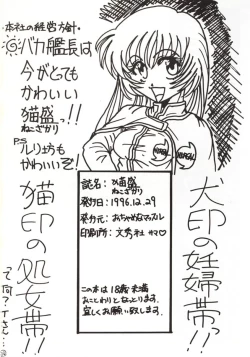 ・本社の経営方針・
◎バカ艦長は
今がとても
かわいい
猫盛っ!!
ねこざかり
P.S.
ルリ坊も
かわいいぞ!
誌名：猫盛
ねこざかり
発行日：1996.12.29
発行元：おちゃめなマッカレル
印刷所：文秀社
この本は18歳未満
おことわりとなっとります。
宜しくお願い致します。
犬印の妊婦帯っ!!
猫印の処女帯!!
って何?